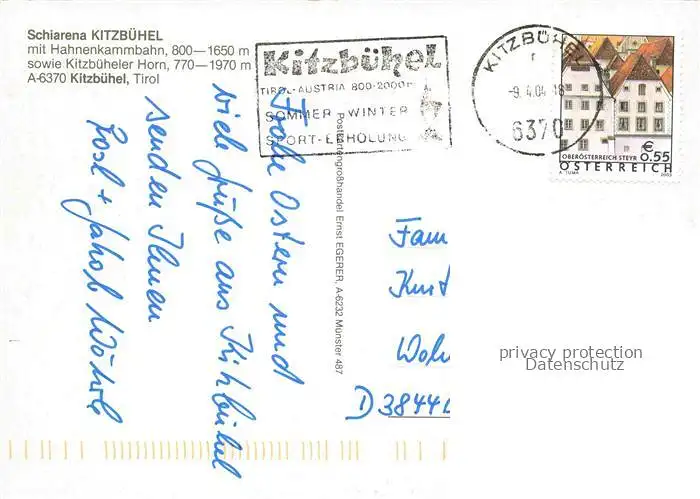 Schiarena KITZBÜHEL
mit Hahnenkammbahn, 800—1650 m
sowie Kitzbüheler Horn, 770—1970 m
A-6370 Kitzbühel, Tirol
Kitzbühel
TIROL-AUSTRIA 800-2000m
SOMMER-WINTER
SPORT-ERHOLUNG
KITZBÜHEL
-9.4.04-18
6370
OBERÖSTERREICH STEYR
€ 0.55
A. TUMA 2003
ÖSTERREICH
Frohe Ostern und
viele Grüße aus Kitzbühel
senden Ihnen
Rosl + Jakob
Postkartengroßhandel Ernst EGERER, A-6232 Münster 487
Fam
Kurt
D 3844
privacy protection
Datenschutz